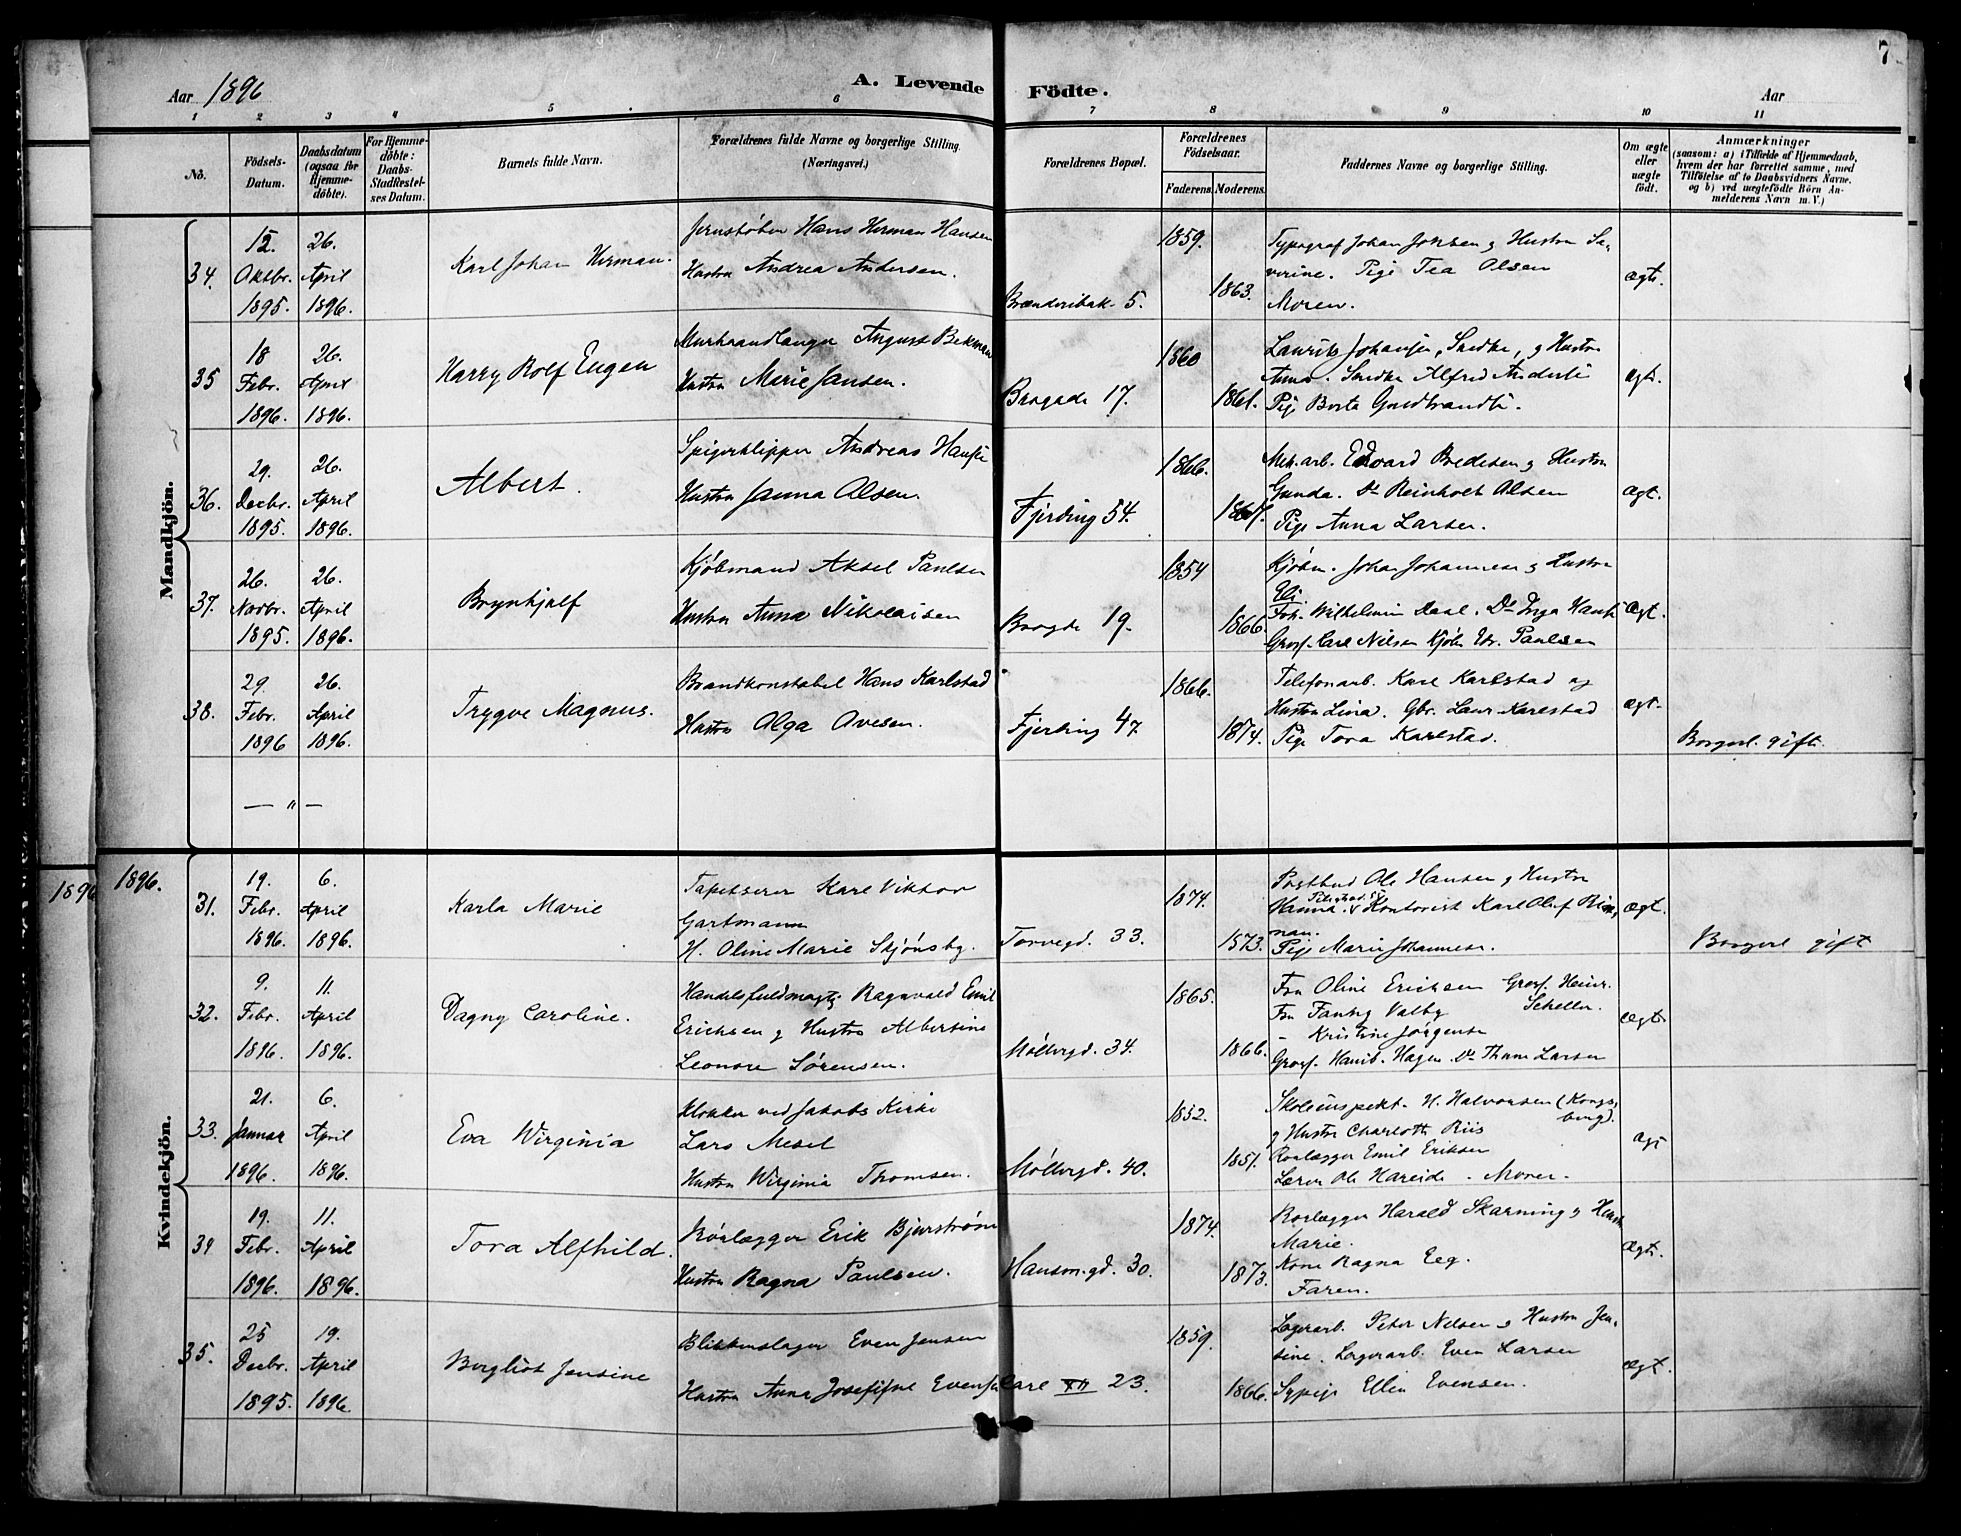 7
Aar 1896
A. Levende Födte.
Aar
1 2 3 4 5 6 7 8 9 10 11
No.
Födsels-
Datum.
Daabsdatum
(ogsaa for
Hjemme-
döbte).
For Hjemme-
döbte:
Daabs-
Stadfæstel-
ses Datum.
Barnets fulde Navn.
Forældrenes fulde Navne og borgerlige Stilling.
(Næringsvei.)
Forældrenes Bopæl.
Forældrenes
Födselsaar.
Faderens. Moderens.
Faddernes Navne og borgerlige Stilling.
Om ægte
eller
uægte
födt.
Anmærkninger
(saasom: a) i Tilfælde af Hjemmedaab,
hvem der har forrettet samme, med
Tilföielse af to Daabsvidners Navne,
og b) ved uægtefödte Börn An-
melderens Navn m. V.)
Mandkjön.
34.
12.
Oktbr.
1895.
26.
April
1896.
Karl Johan Herman.
Jernstøber Hans Herman Hansen
Hustru Andrea Andersen.
5.
1859.
1863.
Typograf Johan Jensen og Hustru Se-
verine. Pige Tea Olsen
Moren.
ægt.
35
18
Febr.
1896.
26.
April
1896.
Harry Rolf Eugen
Murhaandlanger August Bekman
Hustru Marie Jansen.
Brogade 17.
1860
1861.
Laurits Johansen, Snedker, og Hustru
Anna. Snedker Alfred Andersen
Pige Berta Gundbrandsen.
ægt.
36.
29.
Decbr.
1895.
26.
April
1896.
Albert.
Spigerklipper Andreas Hansen
Hustru Janna Olsen.
Fjerding 54.
1866.
Mek.arb. Edvard Bredesen og Hustru
Gunda. Do Reinholt Olsen
Pige Anna Larsen.
ægt.
37.
26.
Novbr.
1895.
26.
April
1896.
Brynhjulf
Kjøbmand Aksel Paulsen
Hustru Anna Nikolaisen
Brogde 19.
1854
1866.
Kjøbm. Johan Johannesen og Hustru
Frk. Wilhelmine Daal. Do Inga Hansen
Gross. Karl Nilsen Kjøbm. Edv. Paulsen
ægt.
38.
29.
Febr.
1896
26.
April
1896.
Trygve Magnus.
Brandkonstabel Hans Karlstad
Hustru Olga Ovesen.
Fjerding 47
1866.
1874.
Telefonarb. Karl Karlstad og
Hustru Lina. Gbr. Laur. Karlstad
Pige Tora Karlstad.
ægt.
Borgerl. gift.
— " —
1896
1896.
Kvindekjön.
31.
19.
Febr.
1896.
6.
April
1896.
Karla Marie
Tapetserer Karl Viktor
Gartmann
H. Oline Marie Skjønsby.
Torvegd. 33.
1874.
1873.
Postbud Ole Hansen og Hustru
Hanna. Kontorist Karl Olaf
Pige Marie Johannesen.
ægt.
Borgerl gift
32.
9.
Febr.
1896.
11.
April
1896.
Dagny Caroline.
Handelsfuldmægtig Ragnvald Emil
Erichsen og Hustru Albertine
Leonore Sørensen.
Møllergd. 34.
1865.
1866.
Fru Oline Erichsen Gross. Heinr.
Fru Fanny Valby Scheller.
- Kristine Jørgensen
Gross. Hanib. Hagen. Do Thom Larsen
ægt.
33.
21.
Januar
1896.
6.
April
1896.
Eva Wirginia
Klokker ved Jakobs Kirke
Lars Mesel
Hustru Wirginia Thomsen.
Møllergd. 40.
1852.
1851.
Skoleinspekt. H. Halvorsen (Kongs-
berg).
og Hustru Charlotte Riis
Rørlægger Emil Eriksen
Lærer Ole Hareide. Moren.
ægt
34
19.
Febr.
1896.
11.
April
1896.
Tora Alfhild.
Rørlægger Erik Bjurstrøm
Hustru Ragna Paulsen.
Hausm.gd. 30.
1874.
1873.
Rørlægger Harald Skarning og Hustru
Marie.
Kone Ragna Eeg.
Faren.
ægt.
35.
25
Decbr.
1895.
19.
April
1896.
Bergliot Jensine
Blikkenslager Even Jensen
Hustru Anna Josefine Evensen
Carl XII 23.
1859.
1866.
Lagerarb. Peter Nelsen og Hustru Jen-
sine. Lagerarb. Even Larsen
Sypige Ellen Evensen.
ægt.